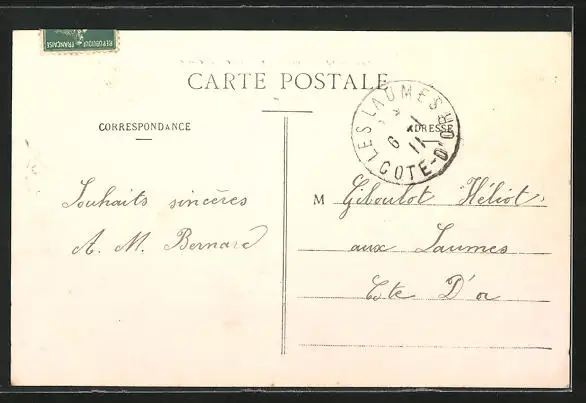 REPUBLIQUE FRANÇAISE
CARTE POSTALE
CORRESPONDANCE
ADRESSE
LES LAUMES
6 -1
11
COTE-D'OR
Souhaits sincères
A. M. Bernard
M Giboulot Héliot
aux Laumes
Côte D'or